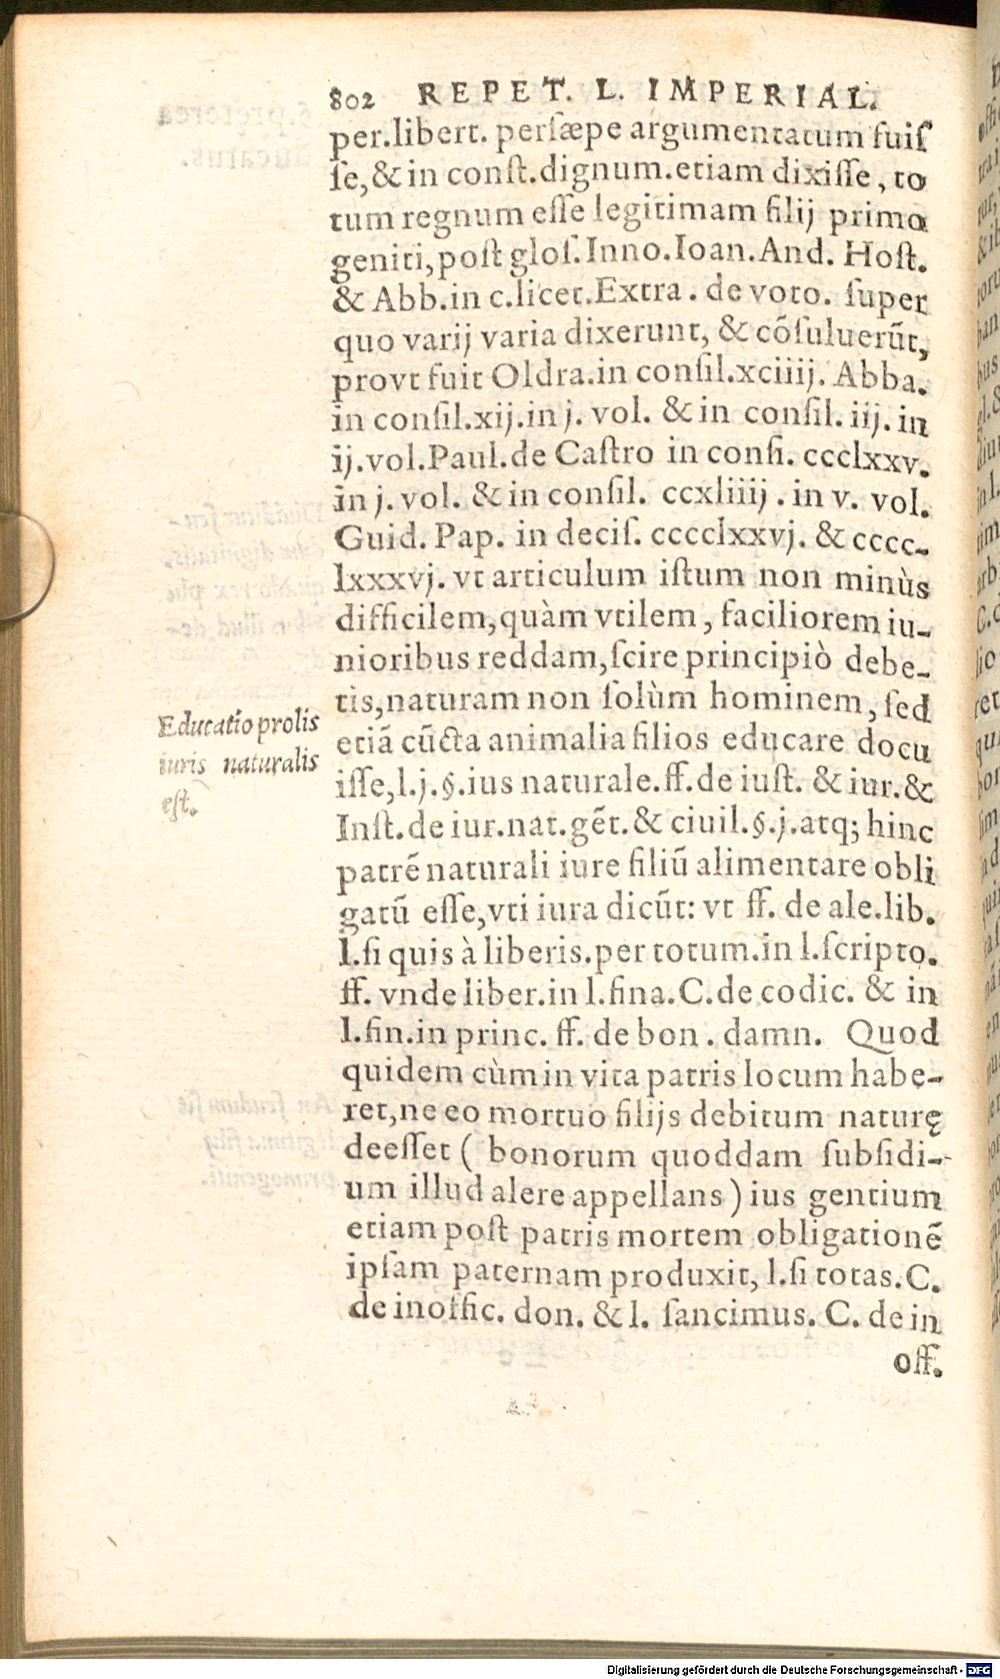 802 REPET. L. IMPERIAL.
per.libert. persæpe argumentatum fuis
se,& in const.dignum.etiam dixisse, to
tum regnum esse legitimam filij primo
geniti,post glos.Inno.Ioan.And. Host.
& Abb.in c.licet.Extra. de voto. super
quo varij varia dixerunt, & cõsuluerũt,
provt fuit Oldra.in consil.xciiij. Abba.
in consil.xij.in j. vol. & in consil. iij. in
ij.vol.Paul.de Castro in consi. ccclxxv.
in j. vol. & in consil. ccxliiij. in v. vol.
Guid. Pap. in decis. cccclxxvj. & cccc-
lxxxvj. vt articulum istum non minùs
difficilem,quàm vtilem, faciliorem iu-
nioribus reddam,scire principiò debe-
tis,naturam non solùm hominem, sed
etiã cũcta animalia filios educare docu
isse,l.j.§.ius naturale.ff.de iust. & iur.&
Inst.de iur.nat.gẽt.& ciuil.§.j.atq; hinc
patrẽ naturali iure filiũ alimentare obli
gatũ esse,vti iura dicũt: vt ff. de ale.lib.
l.si quis à liberis.per totum.in l.scripto.
ff. vnde liber.in l.fina.C.de codic. & in
l.fin.in princ. ff. de bon. damn. Quod
quidem cùm in vita patris locum habe-
ret,ne eo mortuo filijs debitum naturę
deesset ( bonorum quoddam subsidi-
um illud alere appellans ) ius gentium
etiam post patris mortem obligationẽ
ipsam paternam produxit, l.si totas.C.
de inoffic. don. & l. sancimus. C. de in
off.
Educatio prolis
iuris naturalis
est.
Digitalisierung gefördert durch die Deutsche Forschungsgemeinschaft - DFG